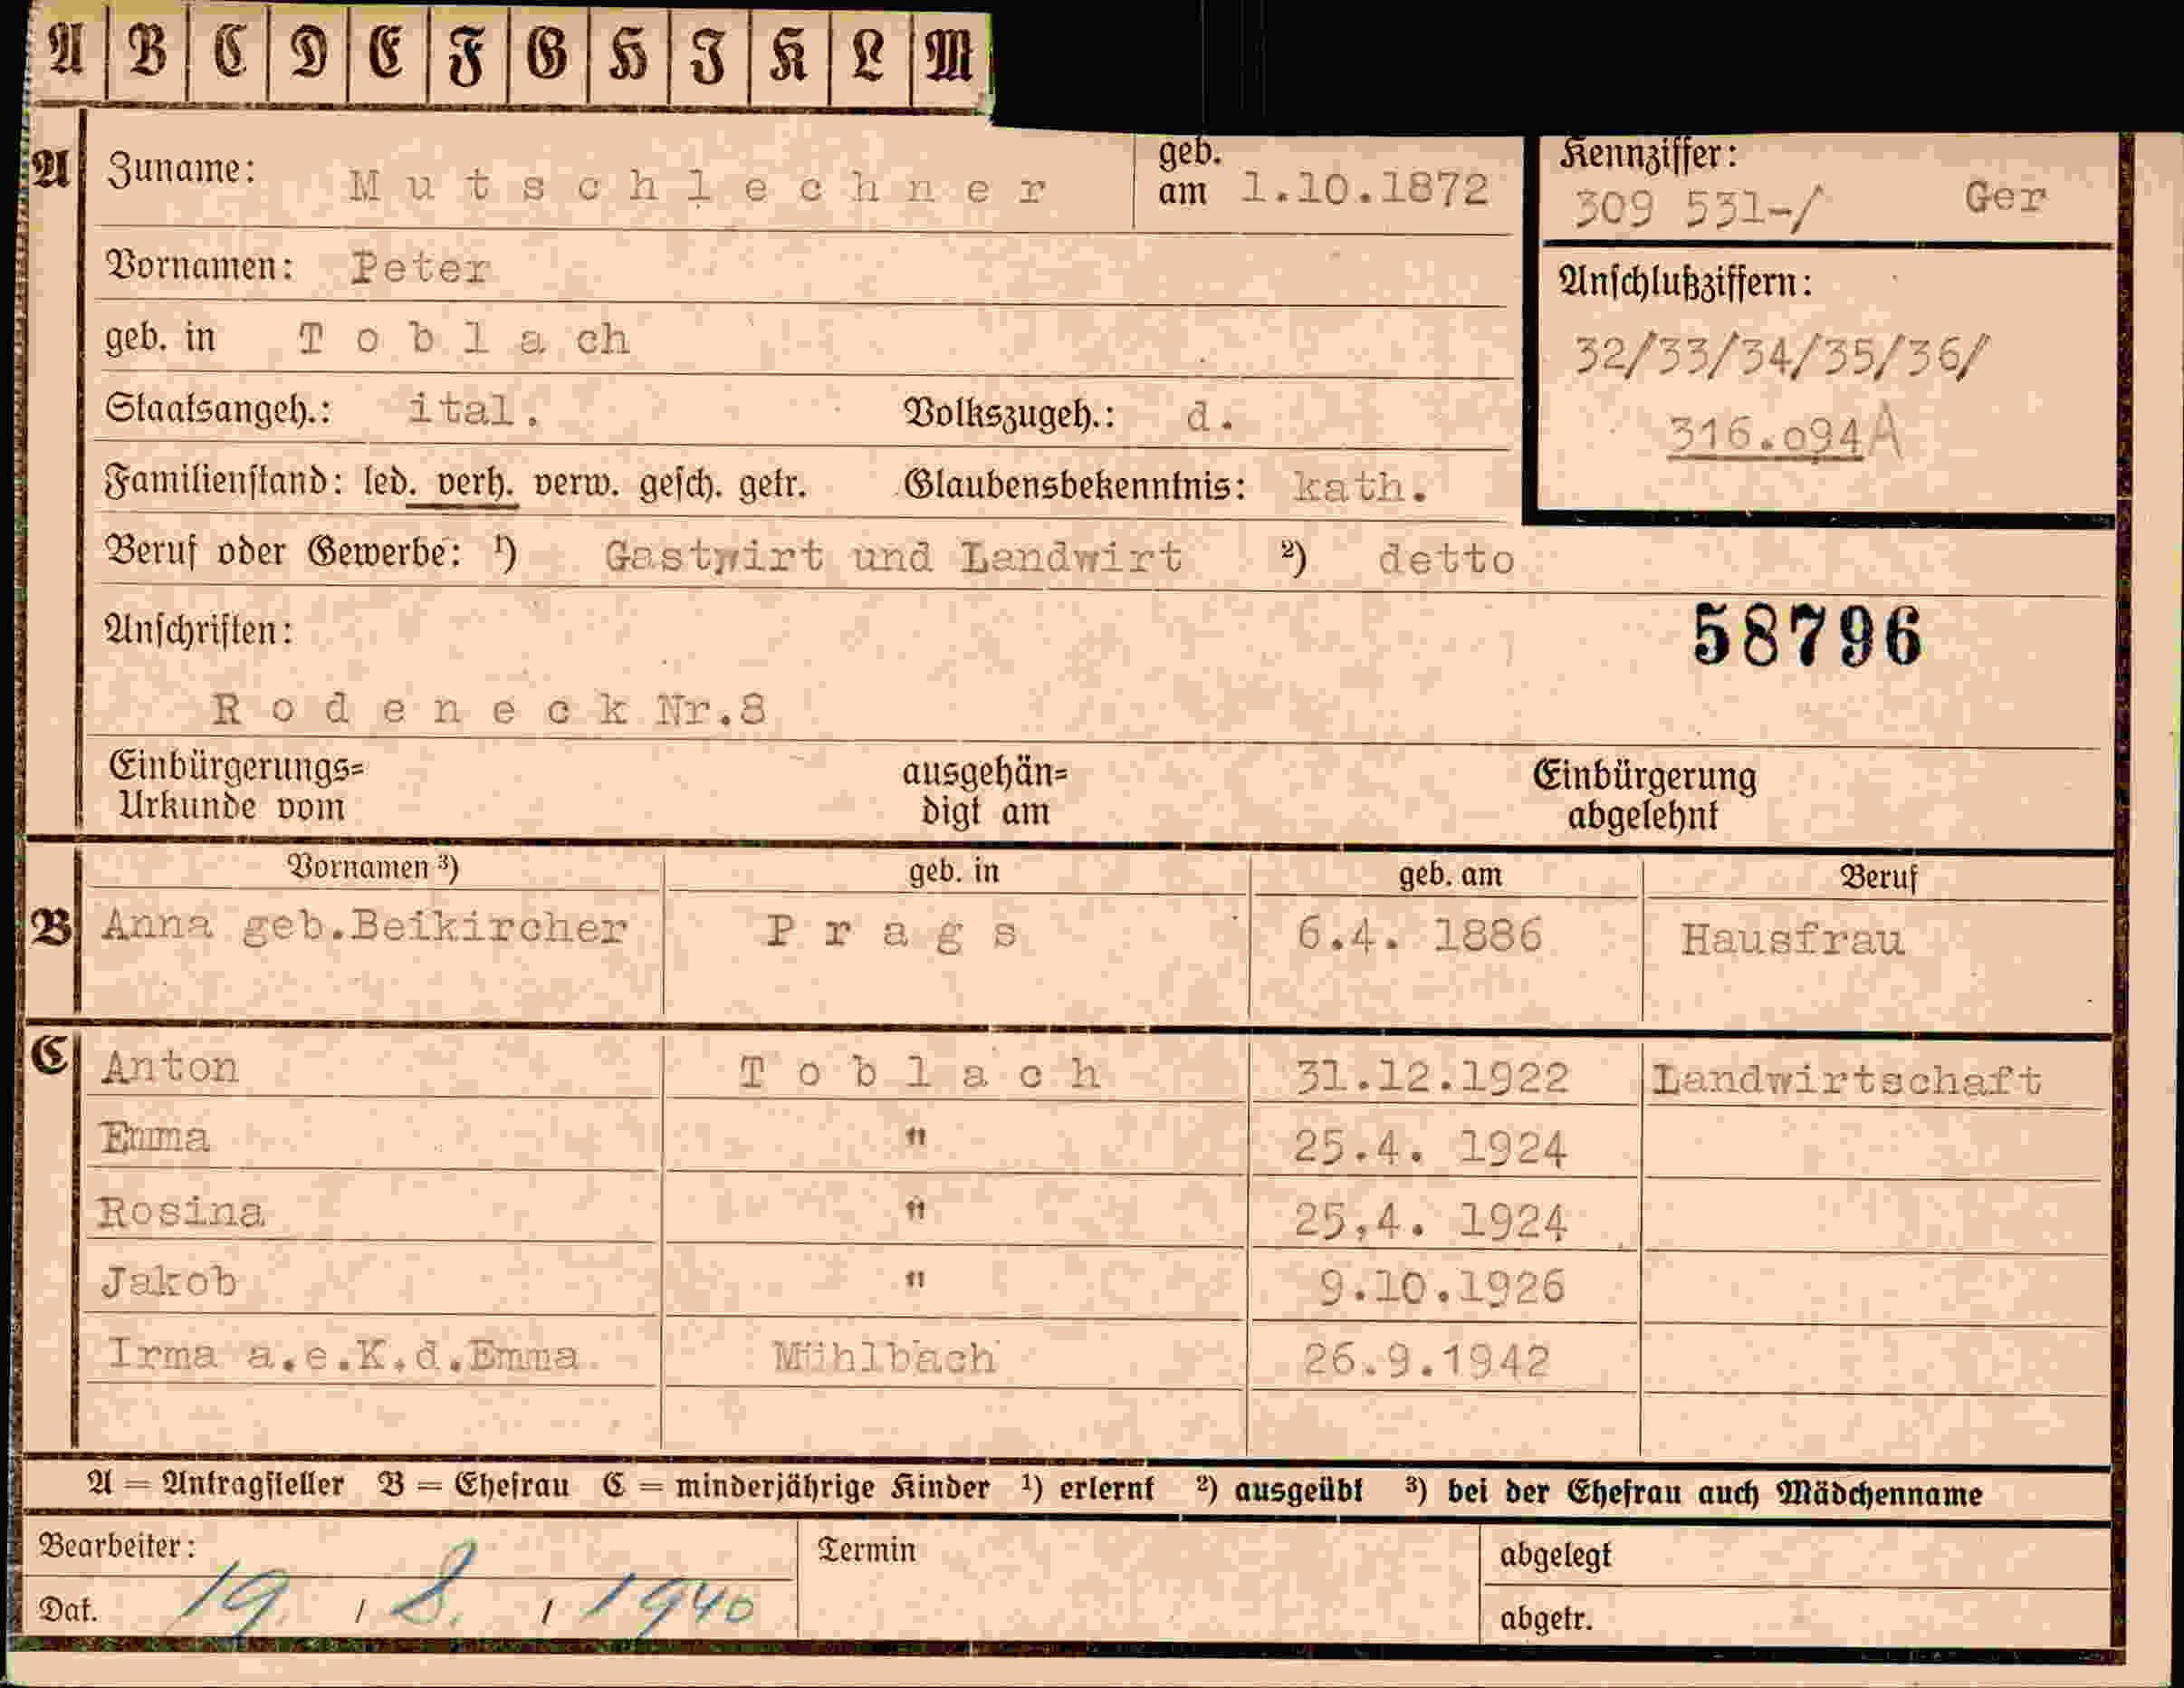 A B C D E F G H I K L M
A Zuname: Mutschlechner geb. am 1.10.1872 Kennziffer:
309 531-/ Ger
Vornamen: Peter
Anschlußziffern:
geb. in Toblach
32/33/34/35/36/
Staatsangeh.: ital. Volkszugeh.: d.
316.094A
Familienstand: led. verh. verw. gesch. getr. Glaubensbekenntnis: kath.
Beruf oder Gewerbe: ¹) Gastwirt und Landwirt ²) detto
Anschriften: 58796
Rodeneck Nr.8
Einbürgerungs= ausgehän= Einbürgerung
Urkunde vom digt am abgelehnt
Vornamen ³) geb. in geb. am Beruf
B Anna geb.Beikircher Prags 6.4. 1886 Hausfrau
C Anton Toblach 31.12.1922 Landwirtschaft
Emma " 25.4. 1924
Rosina " 25.4. 1924
Jakob " 9.10.1926
Irma a.e.K.d.Emma Mühlbach 26.9.1942
A = Antragsteller B = Ehefrau C = minderjährige Kinder ¹) erlernt ²) ausgeübt ³) bei der Ehefrau auch Mädchenname
Bearbeiter: Termin abgelegt
Dat. 19. / 8. / 1940 abgetr.